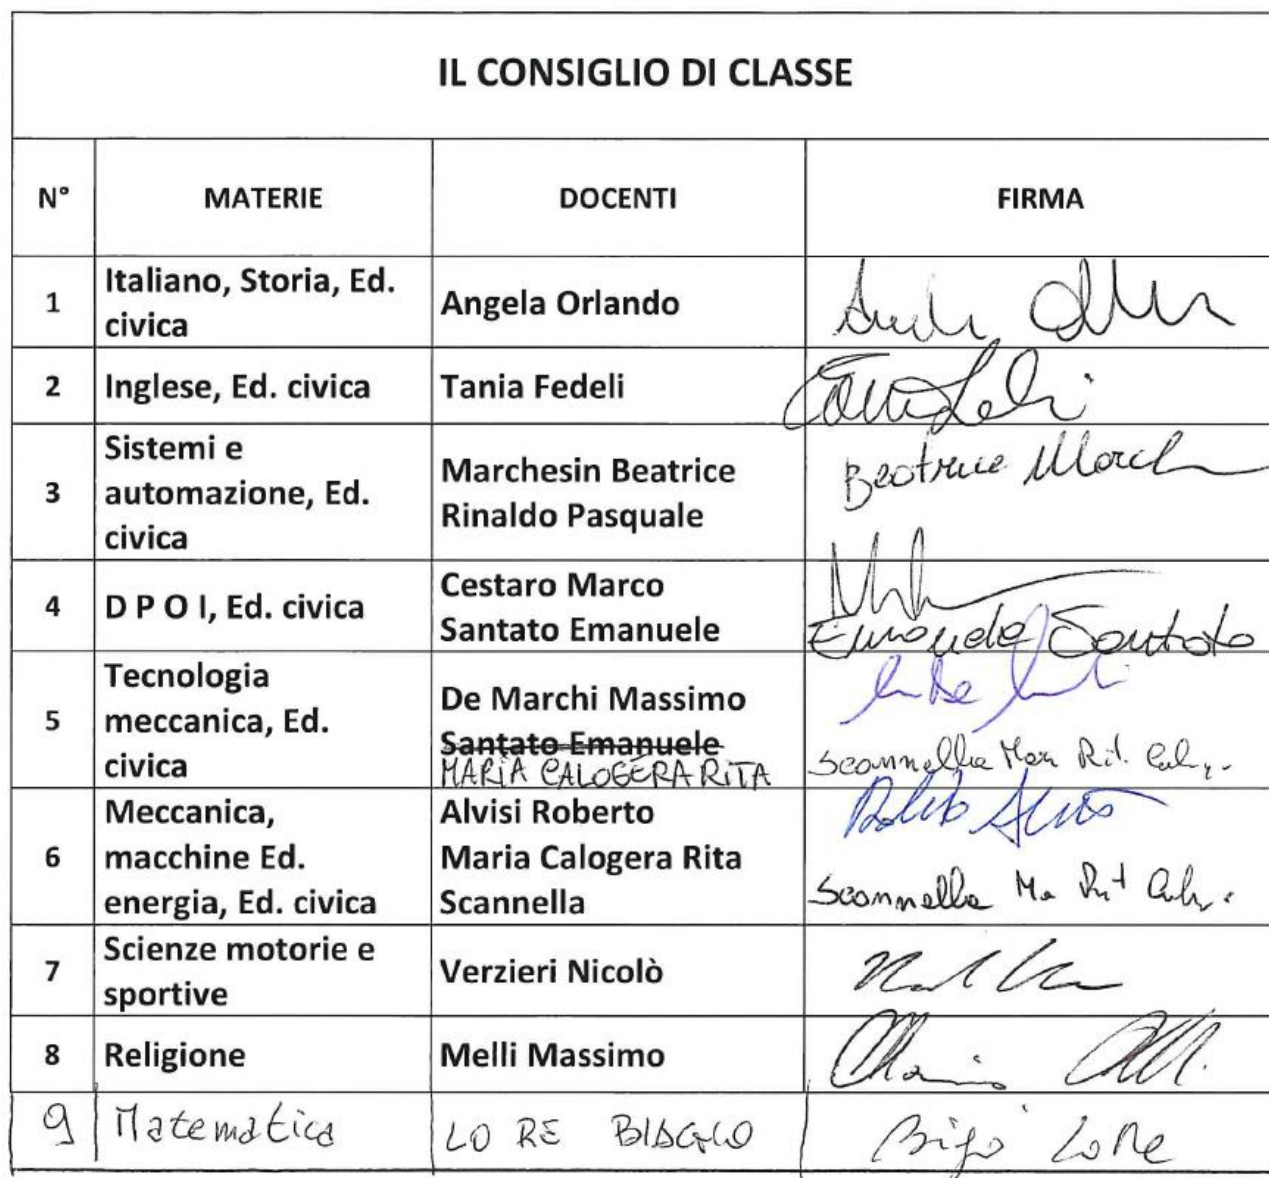 IL CONSIGLIO DI CLASSE
N° MATERIE DOCENTI FIRMA
1 Italiano, Storia, Ed. civica Angela Orlando
2 Inglese, Ed. civica Tania Fedeli
3 Sistemi e automazione, Ed. civica Marchesin Beatrice Rinaldo Pasquale Beatrice
4 D P O I, Ed. civica Cestaro Marco Santato Emanuele Emanuele Santato
5 Tecnologia meccanica, Ed. civica De Marchi Massimo Santato Emanuele MARIA CALOGERA RITA Scannella
6 Meccanica, macchine Ed. energia, Ed. civica Alvisi Roberto Maria Calogera Rita Scannella Scannella
7 Scienze motorie e sportive Verzieri Nicolò
8 Religione Melli Massimo
9 Matematica LO RE Lo Re